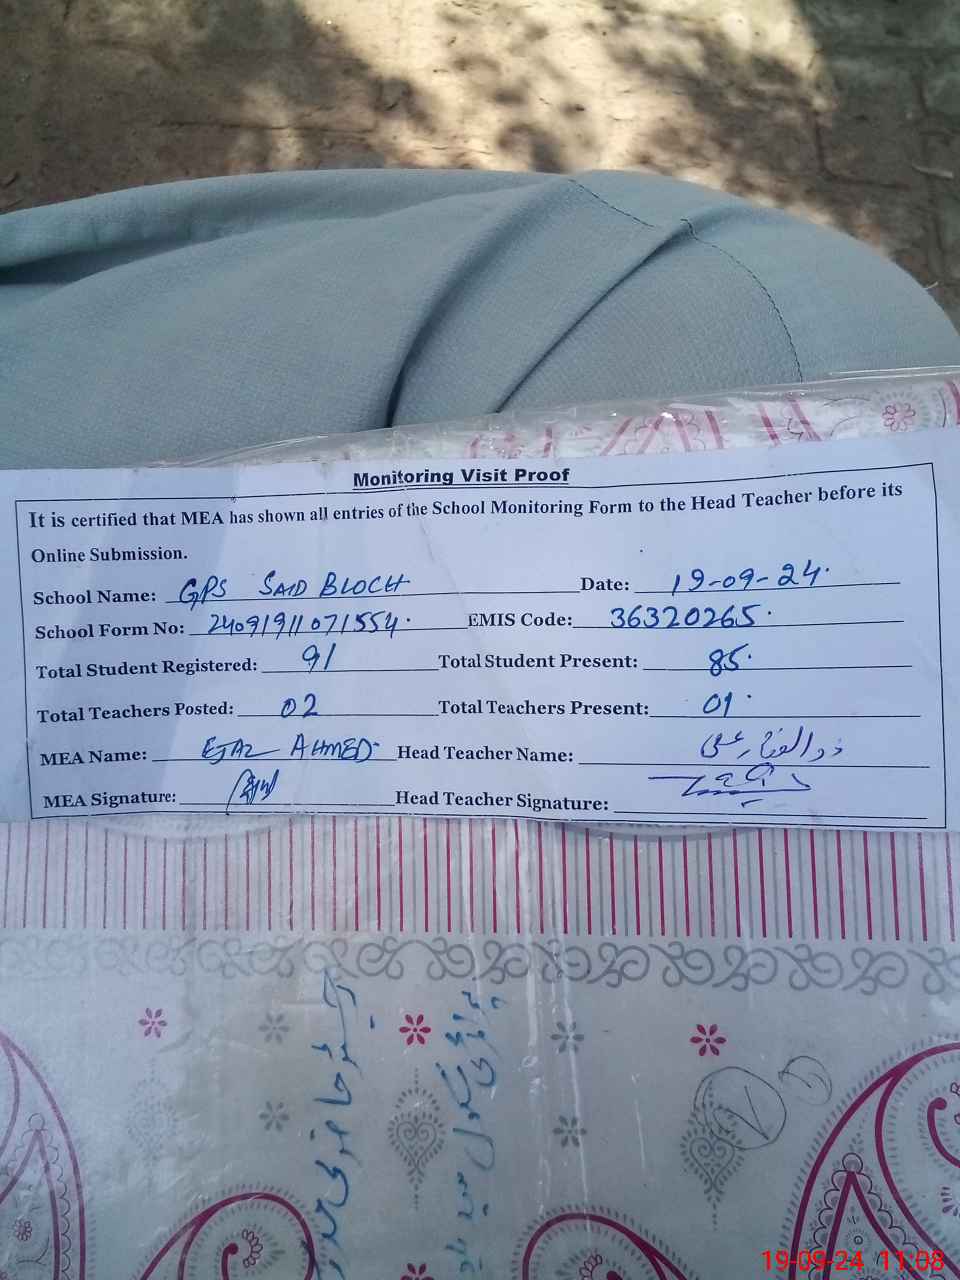 Monitoring Visit Proof
It is certified that MEA has shown all entries of the School Monitoring Form to the Head Teacher before its
Online Submission.
School Name: GPS SAID BLOCH Date: 19-09-24.
School Form No: 24091911071554. EMIS Code: 36320265.
Total Student Registered: 91 Total Student Present: 85.
Total Teachers Posted: 02 Total Teachers Present: 01.
MEA Name: EJAZ AHMED. Head Teacher Name: ذوالفقار علی
MEA Signature: Head Teacher Signature:
پرائمری سکول
19-09-24 11:08